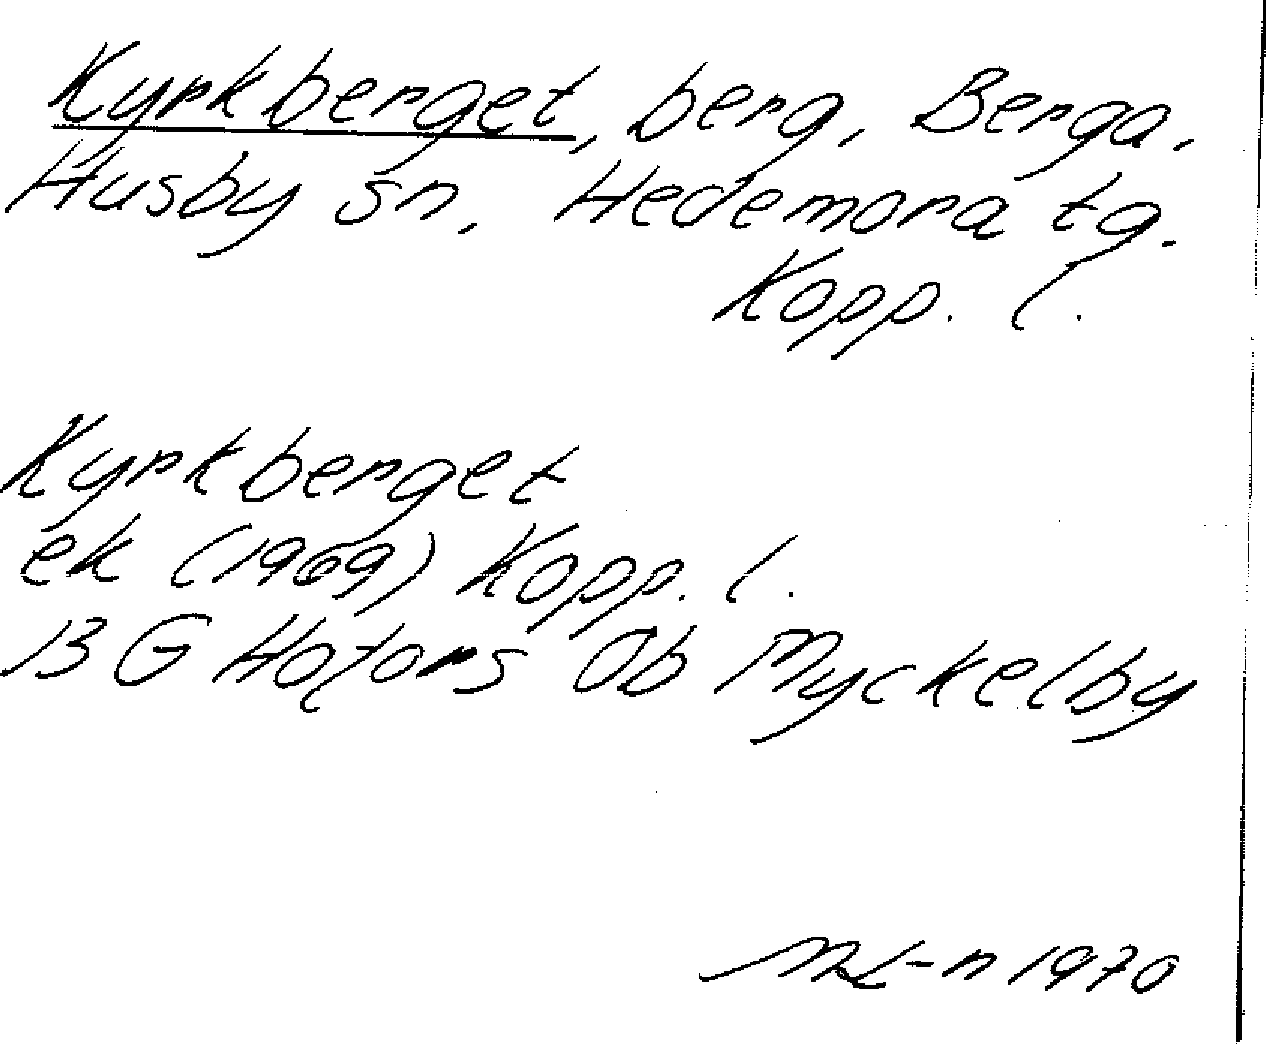 Kyrkberget, berg, Berga,
Husby sn, Hedemora tg.
Kopp. l.
Kyrkberget
ek (1969) Kopp. l.
13 G Hofors 0b Myckelby
ML-n 1970